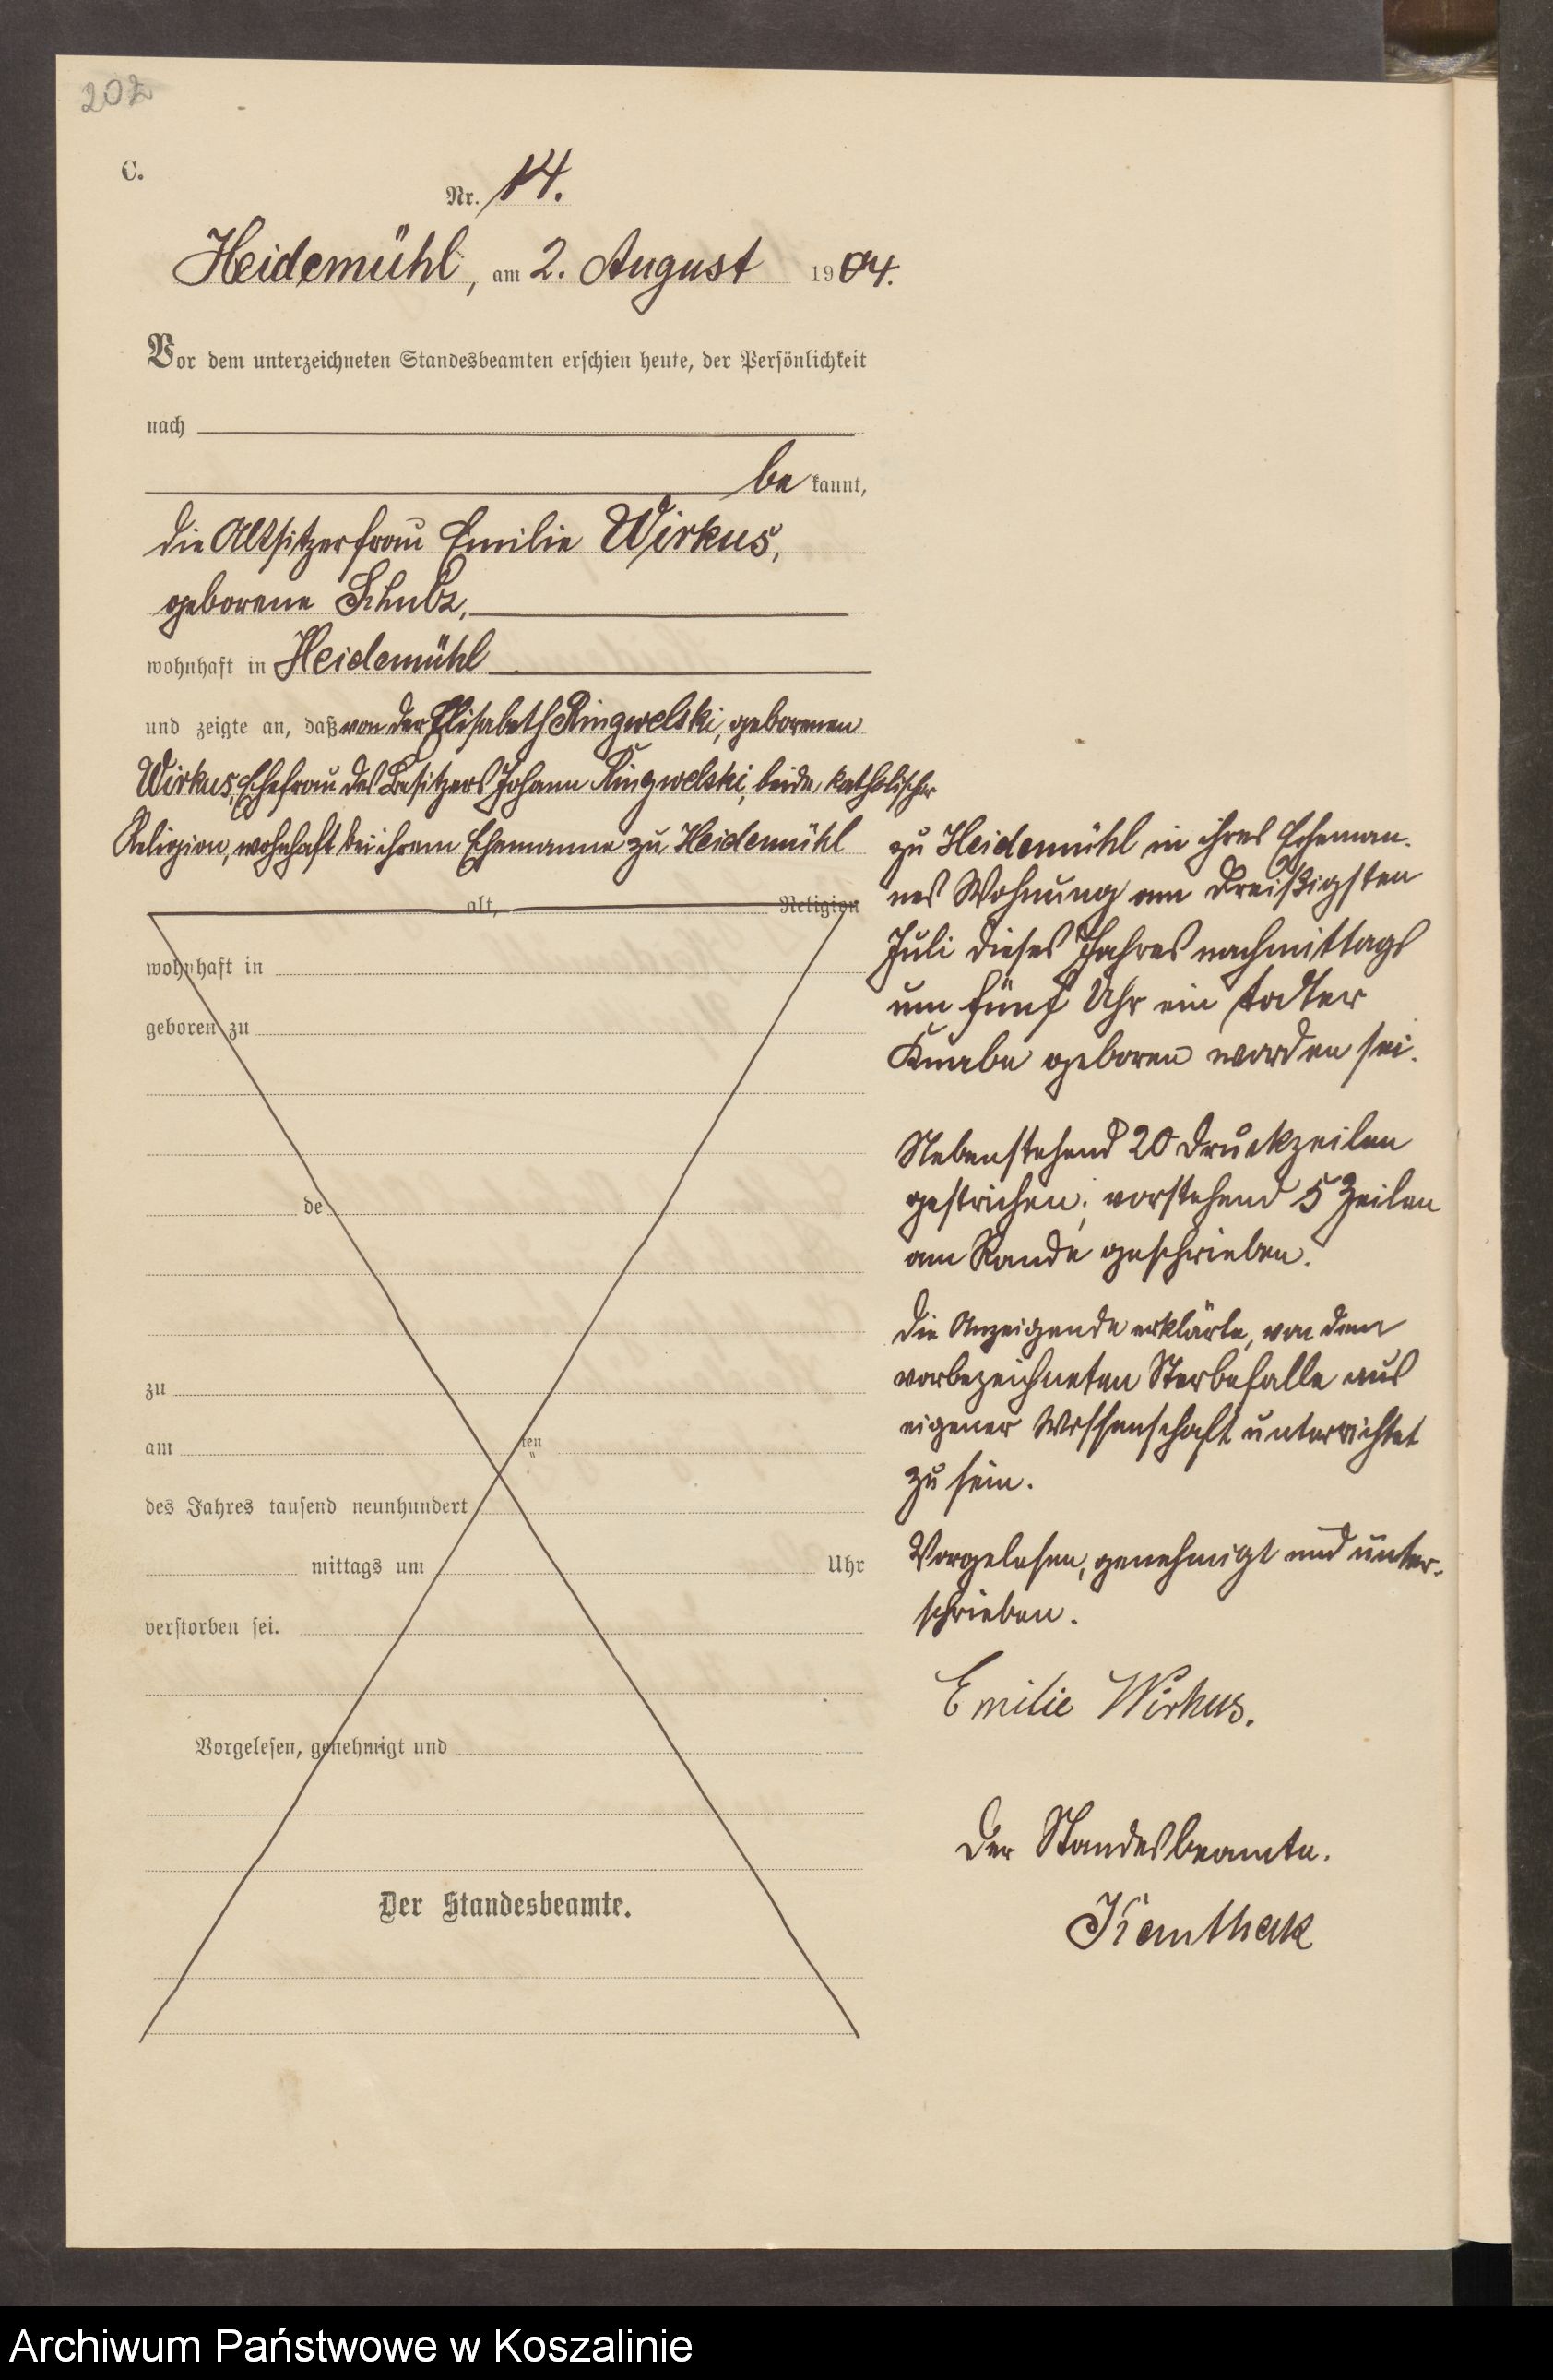 202
C.
Nr. 14.
Heidemühl, am 2. August 1904.
Vor dem unterzeichneten Standesbeamten erschien heute, der Persönlichkeit
nach
be kannt,
die Altsitzerfrau Emilie Wirkus,
geborene Schulz,
wohnhaft in Heidemühl
und zeigte an, daß von der Elisabeth Ringwelski, geborenen
Wirkus, Ehefrau des Besitzers Johann Ringwelski, beide katholischer
Religion, wohnhaft bei ihrem Ehemanne zu Heidemühl
alt, Religion
wohnhaft in
geboren zu
de
zu
am ten
des Jahres tausend neunhundert
mittags um Uhr
verstorben sei.
Vorgelesen, genehmigt und
Der Standesbeamte.
zu Heidemühl in ihres Eheman-
nes Wohnung am dreißigsten
Juli dieses Jahres nachmittags
um fünf Uhr ein todter
Knabe geboren worden sei.
Nebenstehend 20 Druckzeilen
gestrichen; vorstehend 5 Zeilen
am Rande geschrieben.
Die Anzeigende erklärte, von dem
vorbezeichneten Sterbefalle aus
eigener Wissenschaft unterrichtet
zu sein.
Vorgelesen, genehmigt und unter-
schrieben.
Emilie Wirkus.
Der Standesbeamte.
Archiwum Państwowe w Koszalinie